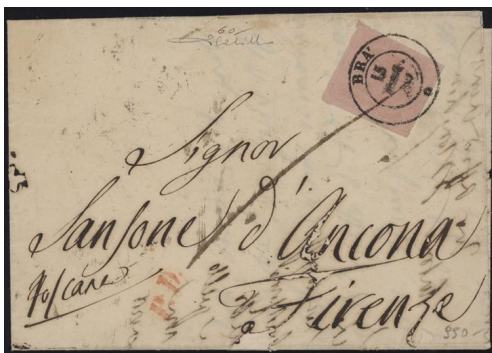 60
BRA'
15
Signor
Sansone d'Ancona
Toscana
P.D.
Firenze
950